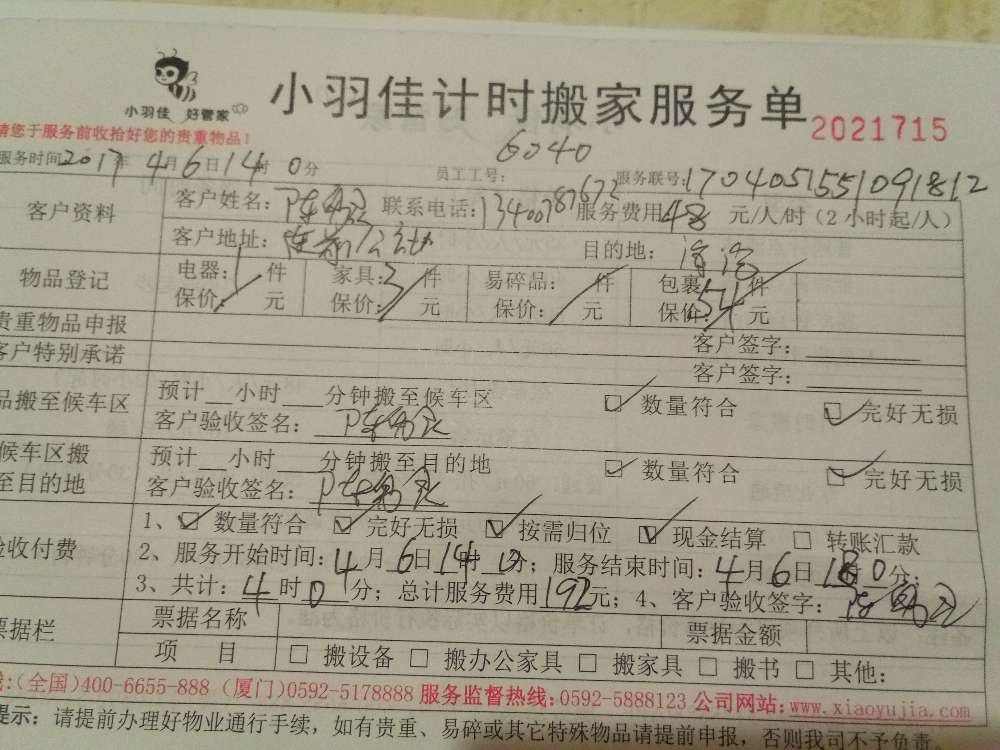 小羽佳 好管家
小羽佳计时搬家服务单
2021715
请您于服务前收拾好您的贵重物品!
6040
服务时间2017年4月6日14时0分 员工工号: 服务联号:1704051551091812
客户资料 客户姓名: 联系电话:13400787672 服务费用48元/人/时(2小时起/人)
客户地址: 目的地:
物品登记 电器:1件 家具:3件 易碎品: 件 包裹54件
保价: 元 保价: 元 保价: 元 保价: 元
贵重物品申报 客户签字:
客户特别承诺 客户签字:
品搬至候车区 预计__小时___分钟搬至候车区 ☑ 数量符合 ☑ 完好无损
客户验收签名:
候车区搬至目的地 预计__小时___分钟搬至目的地 ☑ 数量符合 ☑ 完好无损
客户验收签名:
验收付费 1、☑ 数量符合 ☑ 完好无损 ☑ 按需归位 ☑ 现金结算 □ 转账汇款
2、服务开始时间:4月6日14时0分;服务结束时间:4月6日18时0分;
3、共计:4时0分;总计服务费用192元;4、客户验收签字:
票据栏 票据名称 票据金额
项 目 □ 搬设备 □ 搬办公家具 □ 搬家具 □ 搬书 □ 其他:
(全国)400-6655-888 (厦门)0592-5178888 服务监督热线:0592-5888123 公司网站:www.xiaoyujia.com
提示:请提前办理好物业通行手续,如有贵重、易碎或其它特殊物品请提前申报,否则我司不予负责